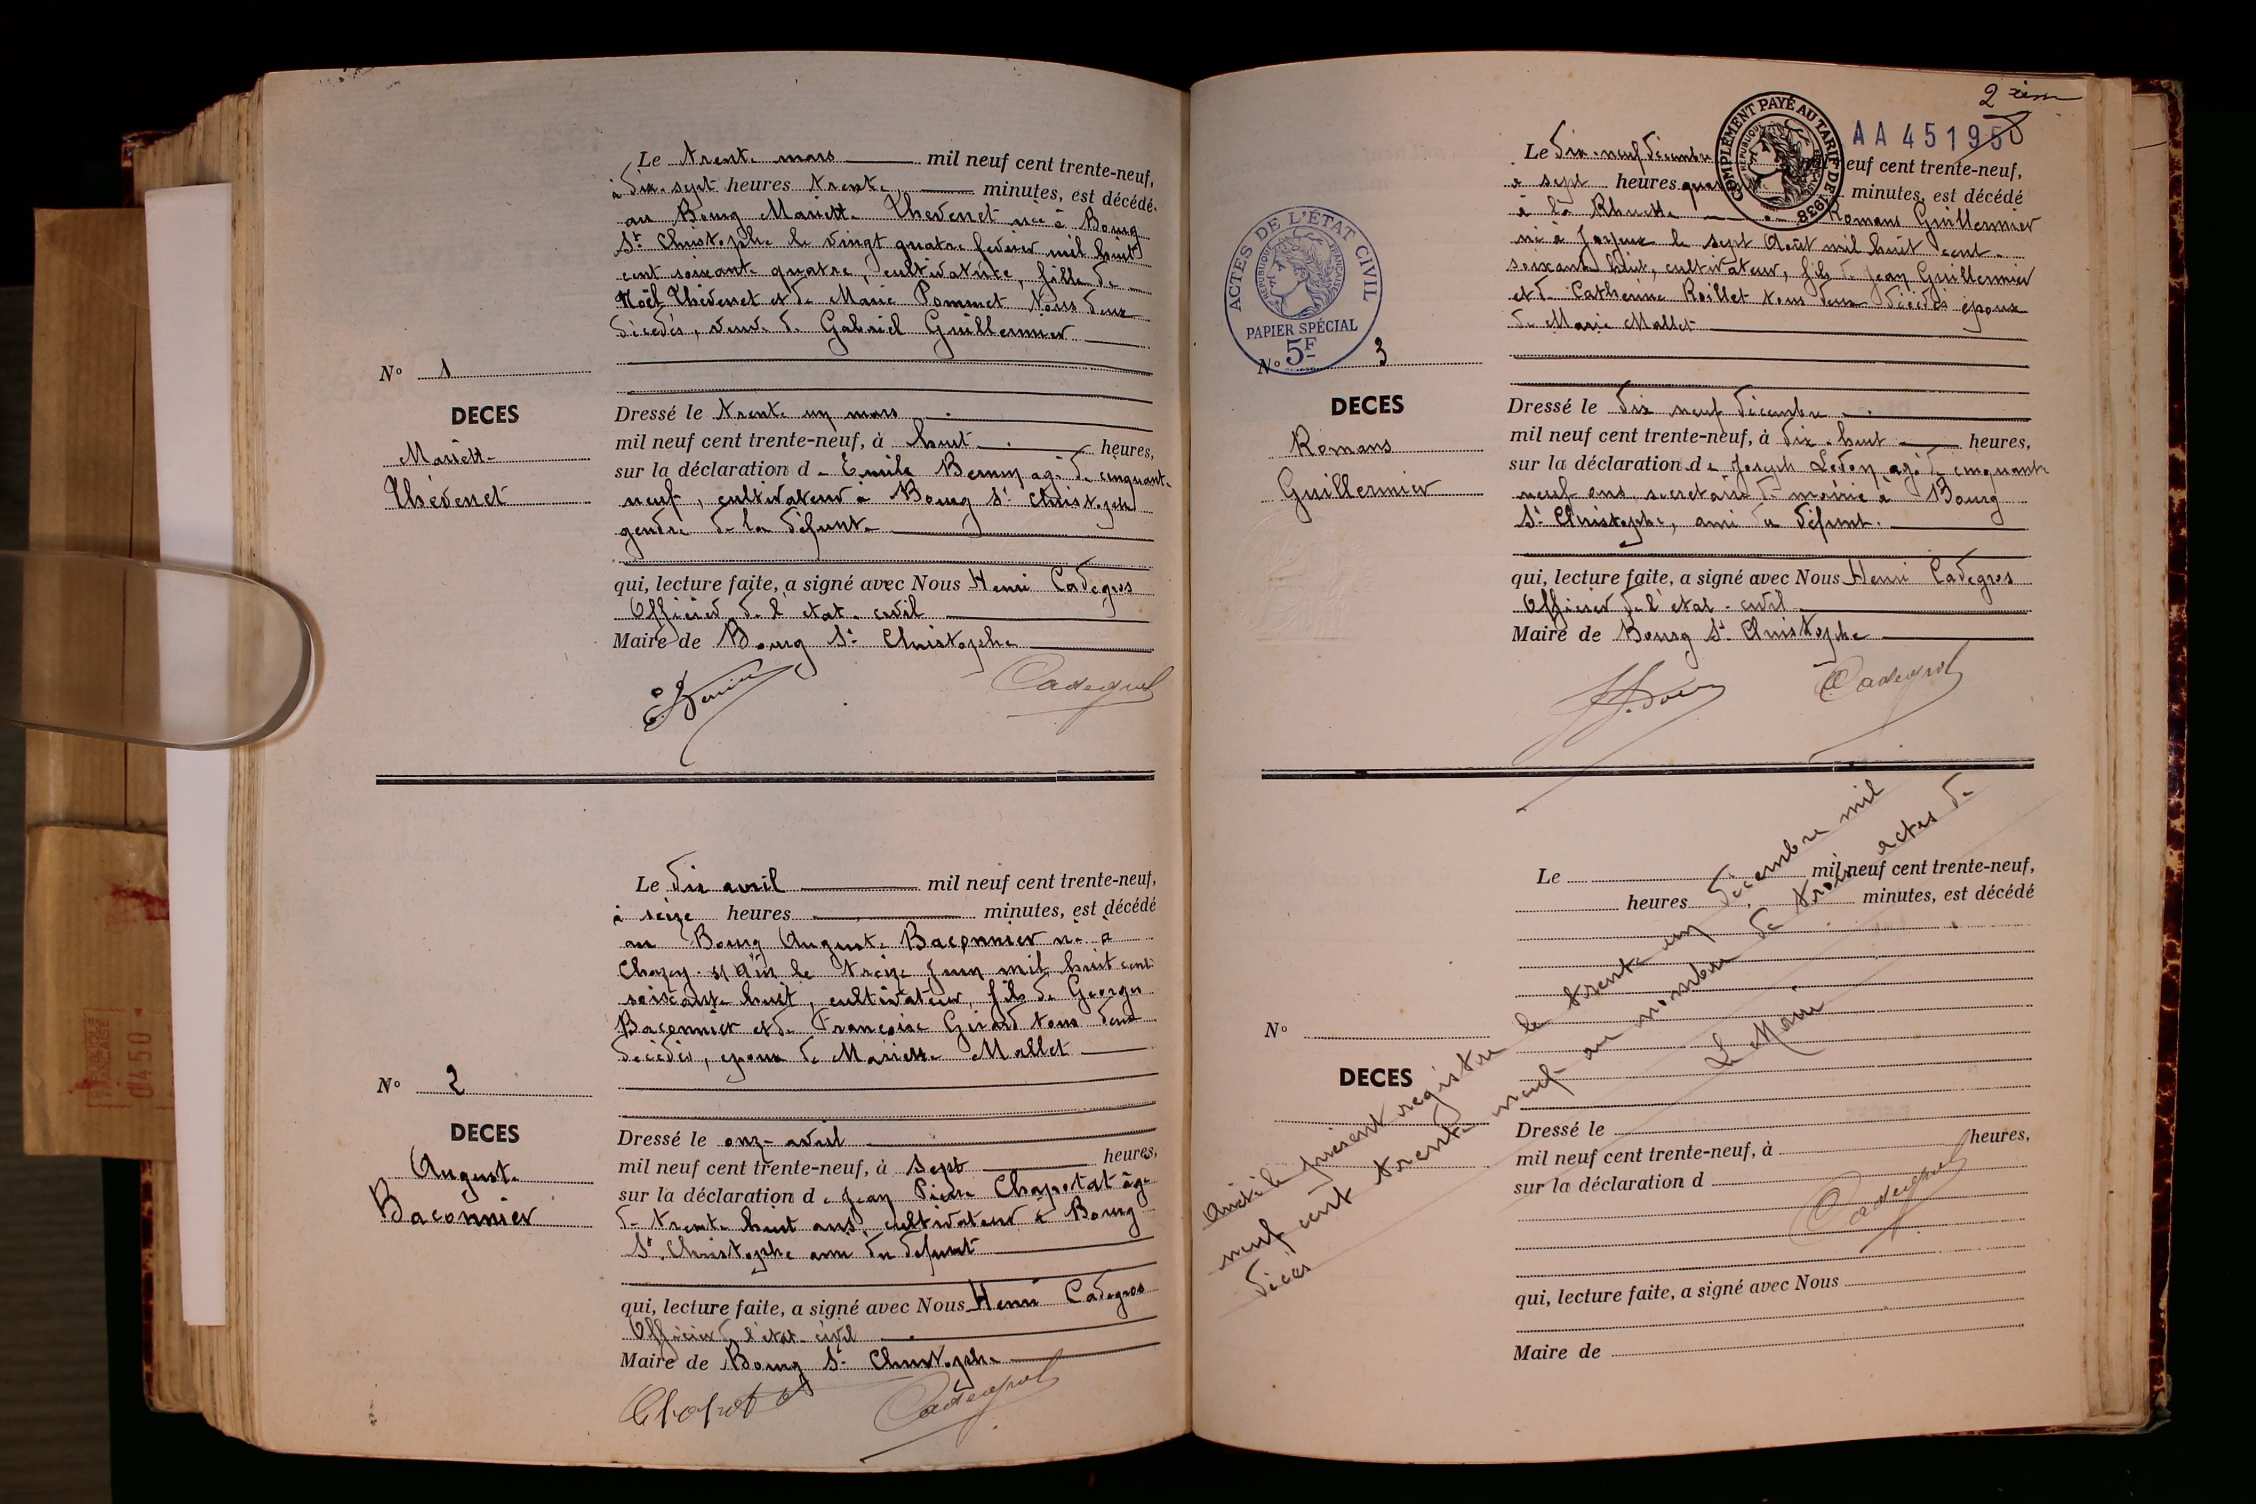 Le trente mars mil neuf cent trente-neuf,
à dix-sept heures trente minutes, est décédé
au Bourg Mariette Thévenet née à Bourg
St Christophe le vingt quatre fevrier mil huit
cent soixante quatre, cultivatrice, fille de
Noël Thévenet et de Marie Pommet tous deux
décédés, veuve de Gabriel Guillermier
N° 1
DECES
Mariette
Thévenet
Dressé le trente un mars
mil neuf cent trente-neuf, à huit heures,
sur la déclaration de Emile Bernin agé de cinquante
neuf, cultivateur à Bourg St Christophe
gendre de la défunte
qui, lecture faite, a signé avec Nous Henri Cadegros
Officier de l'etat-civil
Maire de Bourg St Christophe
Cadegros
Le dix avril mil neuf cent trente-neuf,
à seize heures minutes, est décédé
au Bourg Auguste Baconnier né à
Chazey s/ Ain le treize Juin mil huit cent
soixante huit, cultivateur, fils de Georges
Baconnier et de Françoise Girard tous deux
décédés, epoux de Mariette Mallet
N° 2
DECES
Auguste
Baconnier
Dressé le onze avril
mil neuf cent trente-neuf, à sept heures,
sur la déclaration de Jean Pierre Chapotat âgé
de trente huit ans, cultivateur à Bourg
St Christophe ami du defunt
qui, lecture faite, a signé avec Nous Henri Cadegros
Officier de l'etat-civil
Maire de Bourg St Christophe
Chapotat Cadegros
2 xiem
AA 451950
COMPLÉMENT PAYÉ AU TARIF DE 1938
Le dix-neuf décembre neuf cent trente-neuf,
à sept heures minutes, est décédé
à la Romans Guillermier
né à Joyeux le sept Août mil huit cent
soixante huit, cultivateur, fils de Jean Guillermier
et de Catherine Roillet tous deux décédés époux
de Marie Mallet
ACTES DE L'ÉTAT CIVIL
REPUBLIQUE FRANÇAISE
PAPIER SPÉCIAL
5F
N° 3
DECES
Romans
Guillermier
Dressé le dix neuf décembre
mil neuf cent trente-neuf, à dix-huit heures,
sur la déclaration de Joseph agé de cinquante
neuf ans secretaire de mairie à Bourg
St Christophe, ami du défunt.
qui, lecture faite, a signé avec Nous Henri Cadegros
Officier de l'etat-civil
Maire de Bourg St Christophe
Cadegros
Le mil neuf cent trente-neuf,
heures minutes, est décédé
N°
DECES
Dressé le
mil neuf cent trente-neuf, à heures,
sur la déclaration d
qui, lecture faite, a signé avec Nous
Maire de
Arrêté le présent registre le trente un décembre mil
neuf cent trente neuf au nombre de trois actes de
décès
Le Maire
Cadegros
0450